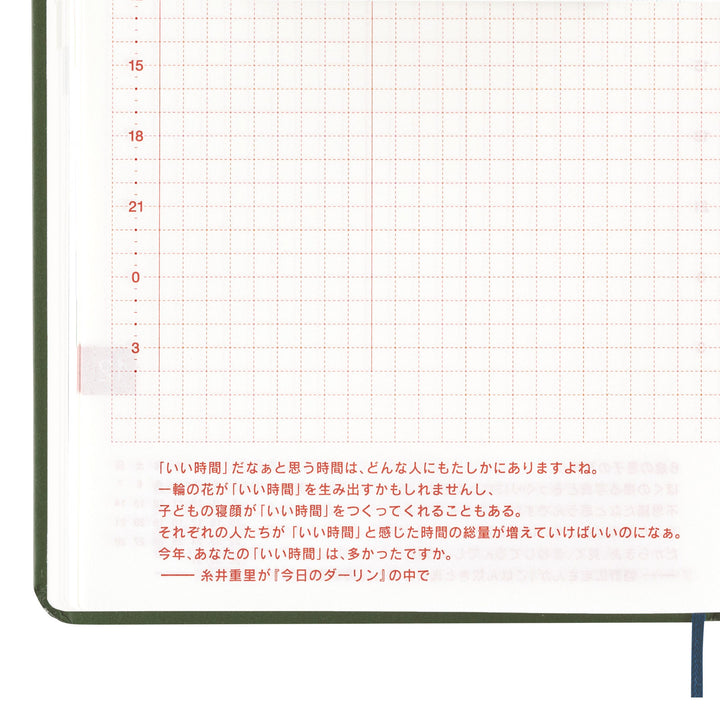 15
18
21
0
3
「いい時間」だなぁと思う時間は、どんな人にもたしかにありますよね。
一輪の花が「いい時間」を生み出すかもしれませんし、
子どもの寝顔が「いい時間」をつくってくれることもある。
それぞれの人たちが「いい時間」と感じた時間の総量が増えていけばいいのになぁ。
今年、あなたの「いい時間」は、多かったですか。
—— 糸井重里が『今日のダーリン』の中で